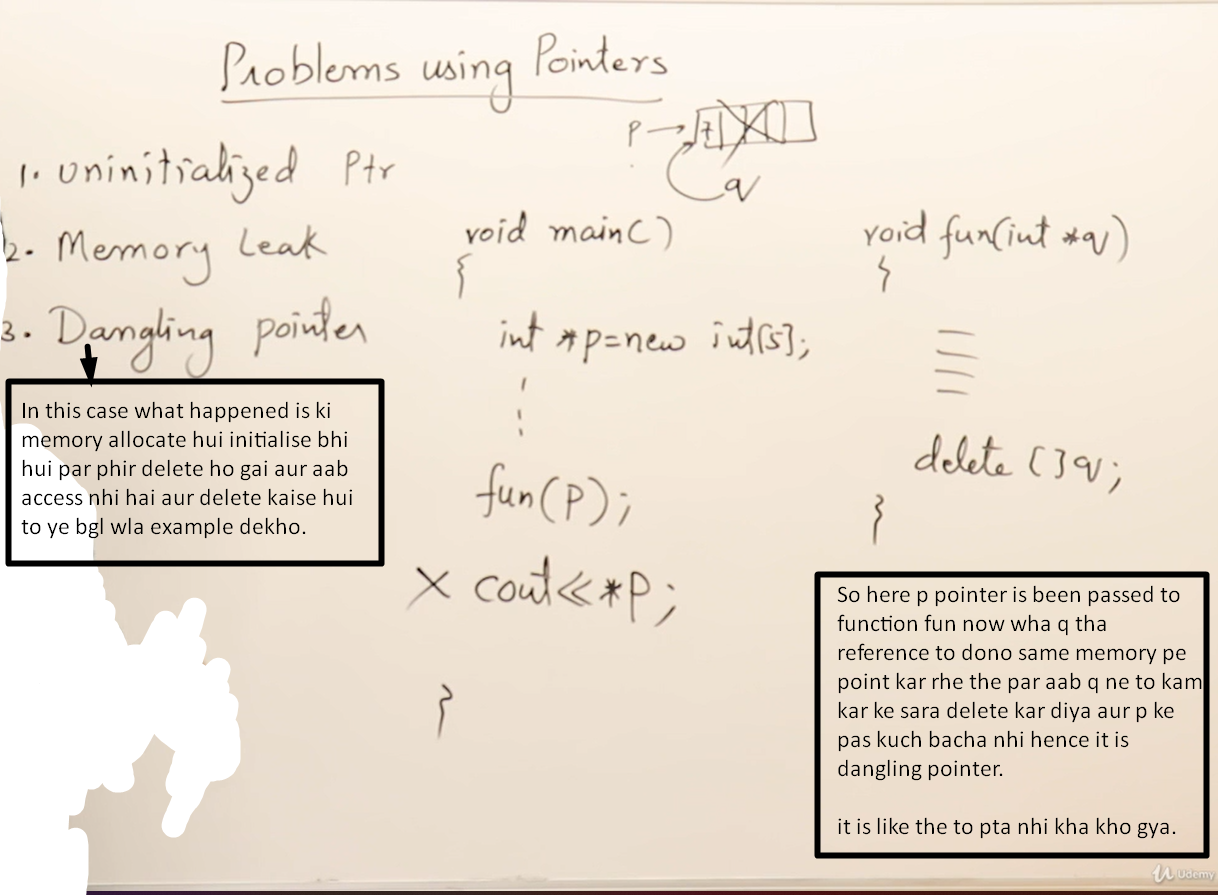 Problems using Pointers
P
7
q
1. uninitialized Ptr
2. Memory Leak
3. Dangling pointer
In this case what happened is ki
memory allocate hui initialise bhi
hui par phir delete ho gai aur aab
access nhi hai aur delete kaise hui
to ye bgl wla example dekho.
void main()
{
int *p=new int[5];
fun(P);
X cout<<*P;
}
void fun(int *q)
{
delete []q;
}
So here p pointer is been passed to
function fun now wha q tha
reference to dono same memory pe
point kar rhe the par aab q ne to kam
kar ke sara delete kar diya aur p ke
pas kuch bacha nhi hence it is
dangling pointer.
it is like the to pta nhi kha kho gya.
Udemy